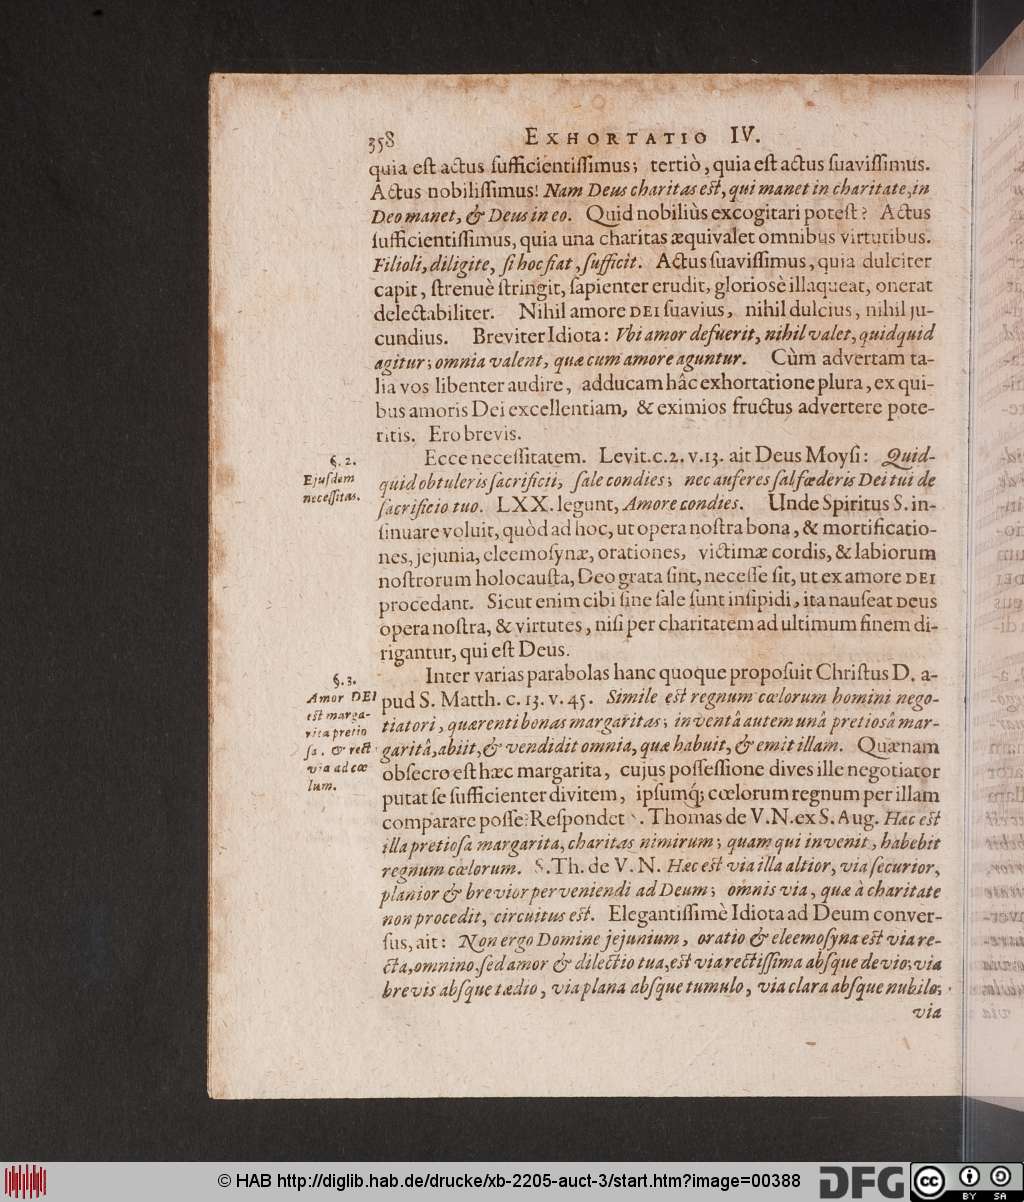 358 EXHORTATIO IV.
quia eſt actus ſufficientiſſimus; tertiò, quia eſt actus ſuaviſſimus.
Actus nobiliſſimus! Nam Deus charitas eſt, qui manet in charitate, in
Deo manet, & Deus in eo. Quid nobiliùs excogitari poteſt? Actus
ſufficientiſſimus, quia una charitas æquivalet omnibus virtutibus.
Filioli, diligite, ſi hoc fiat, ſufficit. Actus ſuaviſſimus, quia dulciter
capit, ſtrenuè ſtringit, ſapienter erudit, glorioſè illaqueat, onerat
delectabiliter. Nihil amore DEI ſuavius, nihil dulcius, nihil ju-
cundius. Breviter Idiota: Vbi amor defuerit, nihil valet, quidquid
agitur; omnia valent, quæ cum amore aguntur. Cùm advertam ta-
lia vos libenter audire, adducam hâc exhortatione plura, ex qui-
bus amoris Dei excellentiam, & eximios fructus advertere pote-
ritis. Ero brevis.
§. 2.
Ejuſdem
neceſſitas.
Ecce neceſſitatem. Levit. c. 2. v. 13. ait Deus Moyſi: Quid-
quid obtuleris ſacrificii, ſale condies; nec auferes ſal fœderis Dei tui de
ſacrificio tuo. LXX. legunt, Amore condies. Unde Spiritus S. in-
ſinuare voluit, quòd ad hoc, ut opera noſtra bona, & mortificatio-
nes, jejunia, eleemoſynæ, orationes, victimæ cordis, & labiorum
noſtrorum holocauſta, Deo grata ſint, neceſſe ſit, ut ex amore DEI
procedant. Sicut enim cibi ſine ſale ſunt inſipidi, ita nauſeat DEUS
opera noſtra, & virtutes, niſi per charitatem ad ultimum finem di-
rigantur, qui eſt Deus.
§. 3.
Amor DEI
eſt marga-
rita pretio
ſa, & rect
via ad cœ
lum.
Inter varias parabolas hanc quoque propoſuit Chriſtus D. a-
pud S. Matth. c. 13. v. 45. Simile eſt regnum cœlorum homini nego-
tiatori, quærenti bonas margaritas; inventâ autem unâ pretiosâ mar-
garitâ, abiit, & vendidit omnia, quæ habuit, & emit illam. Quænam
obſecro eſt hæc margarita, cujus poſſeſſione dives ille negotiator
putat ſe ſufficienter divitem, ipſumq; cœlorum regnum per illam
comparare poſſe? Reſpondet . Thomas de V. N. ex S. Aug. Hæc eſt
illa pretioſa margarita, charitas nimirum; quam qui invenit, habebit
regnum cœlorum. S. Th. de V. N. Hæc eſt via illa altior, via ſecurior,
planior & brevior perveniendi ad Deum; omnis via, quæ à charitate
non procedit, circuitus eſt. Elegantiſſimè Idiota ad Deum conver-
ſus, ait: Non ergo Domine jejunium, oratio & eleemoſyna eſt via re-
cta, omnino, ſed amor & dilectio tua, eſt via rectiſſima abſque devio, via
brevis abſque tædio, via plana abſque tumulo, via clara abſque nubilo;
via
© HAB http://diglib.hab.de/drucke/xb-2205-auct-3/start.htm?image=00388
DFG
cc BY SA